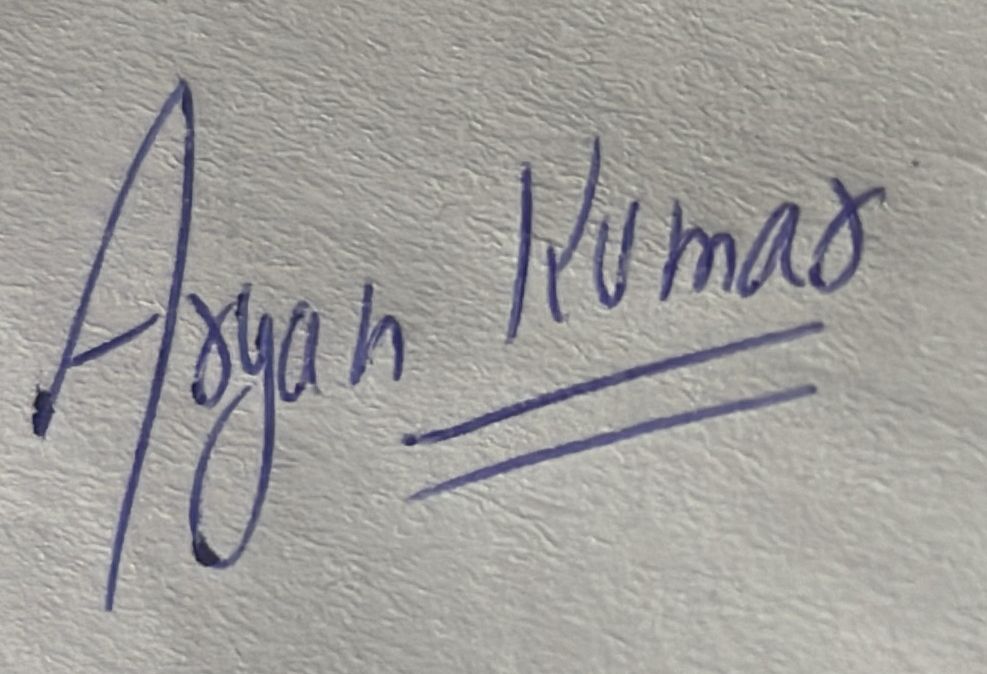 Aryan Kumar